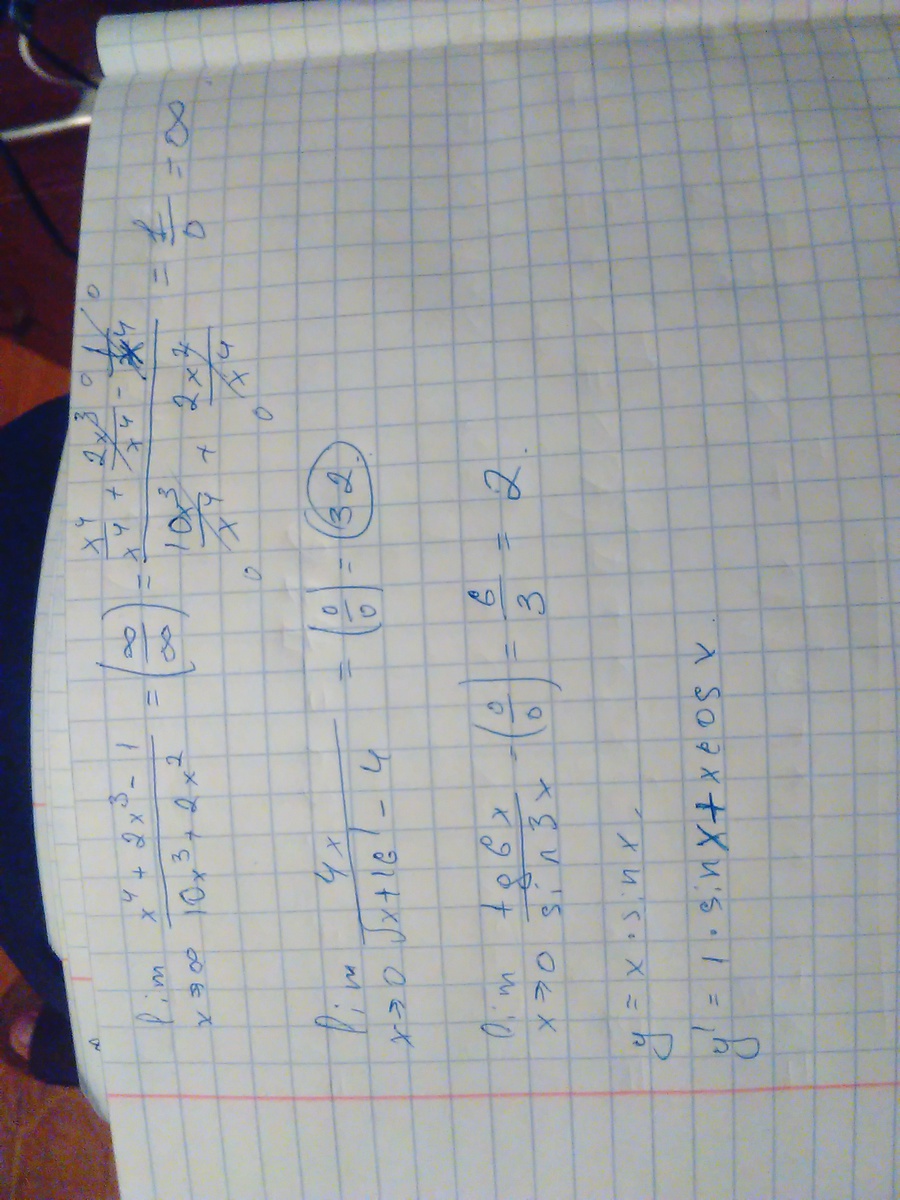 lim x→∞ (x⁴ + 2x³ - 1)/(10x³ + 2x²) = (∞/∞) = (x⁴/x⁴ + 2x³/x⁴ - 1/x⁴)/(10x³/x⁴ + 2x²/x⁴) = 1/0 = ∞.
0 0
0 0
lim x→0 4x/(√x+16 - 4) = (0/0) = 32.
lim x→0 tg6x/sin3x - (0/0) = 6/3 = 2.
y = x · sin x.
y' = 1 · sin x + x cos x.